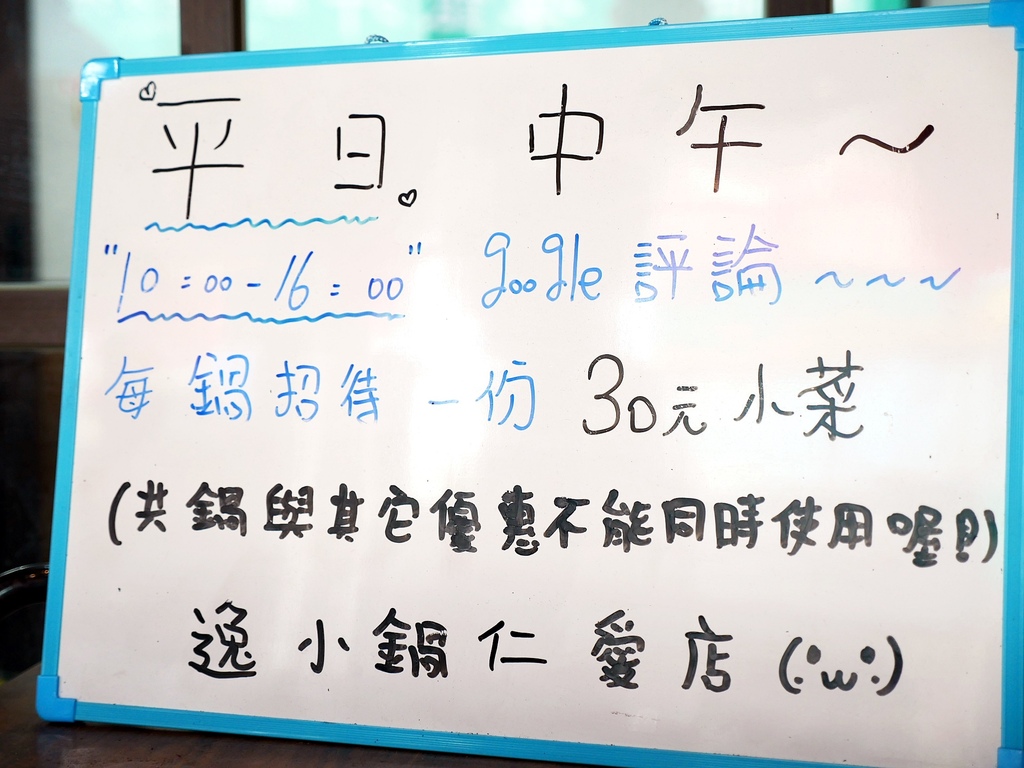 平日 中午～
"10:00-16:00" google 評論~~~
每鍋招待一份 30元小菜
(共鍋與其它優惠不能同時使用喔!!)
逸小鍋仁愛店(·ω·)